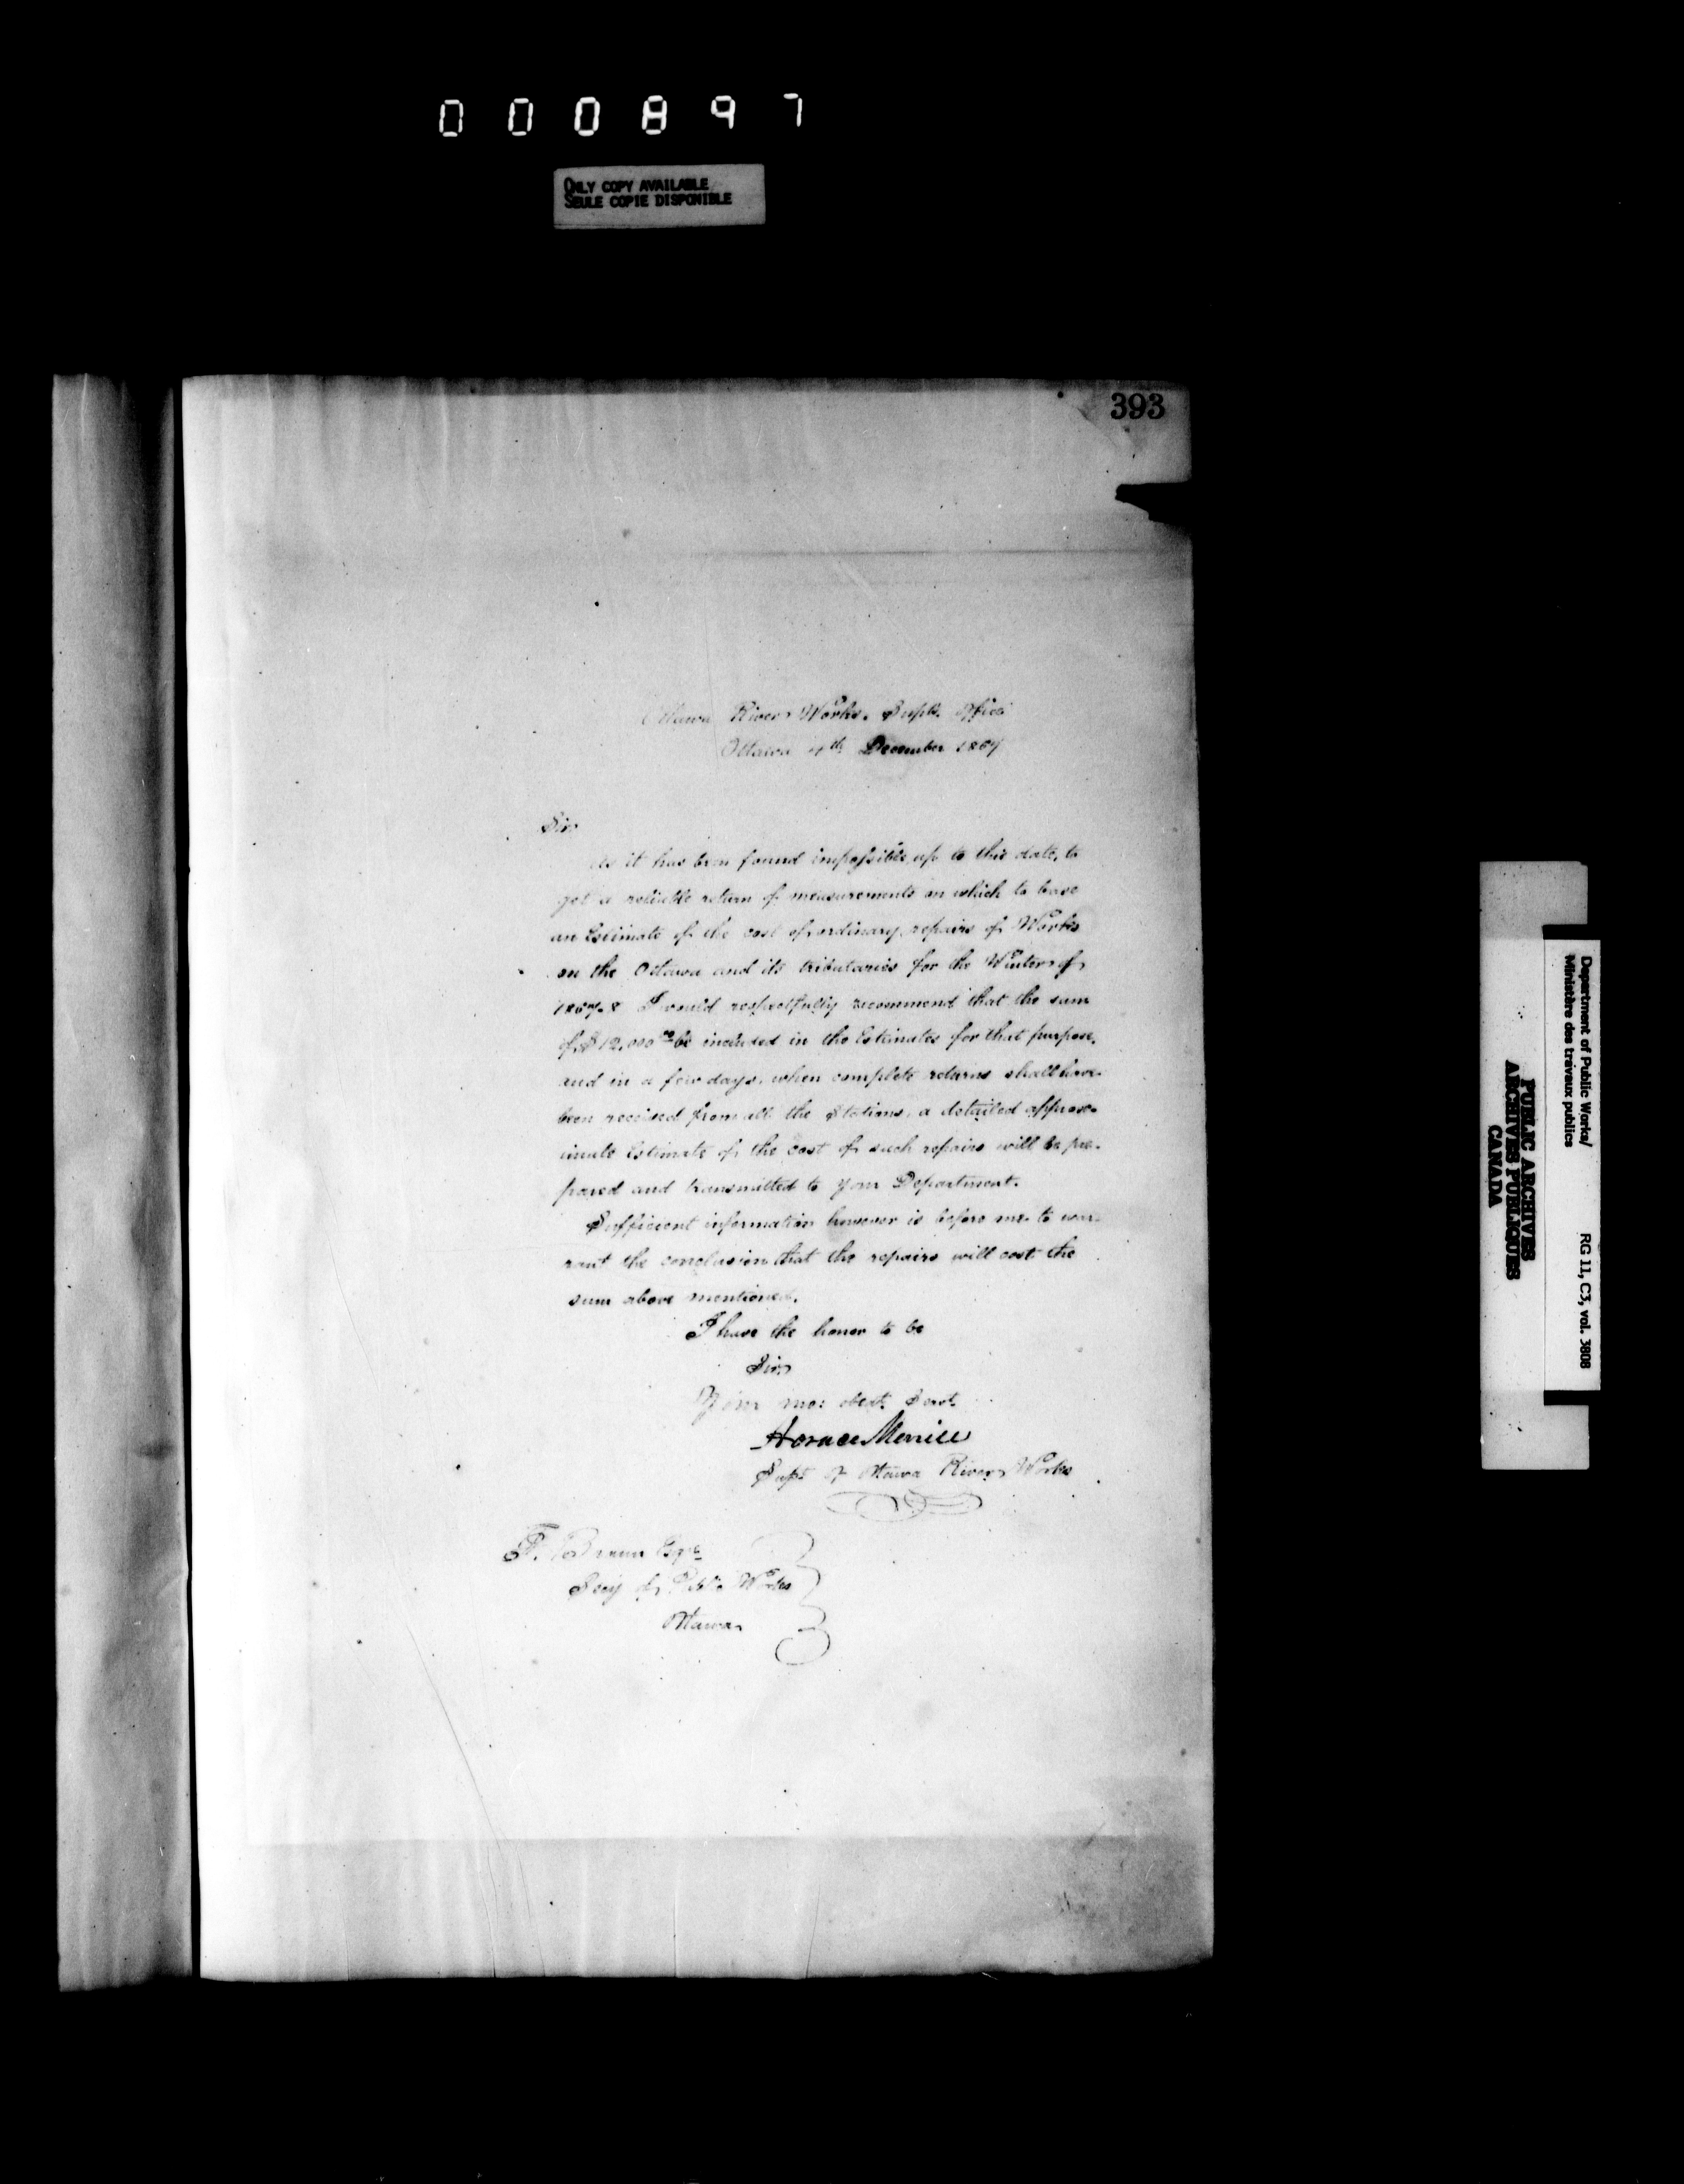 000897
ONLY COPY AVAILABLE
SEULE COPIE DISPONIBLE
393
Ottawa River Works. Supts. Office
Ottawa 4th December 1867
Sir,
As it has been found impossible up to this date, to
get a reliable return of measurements on which to base
an Estimate of the cost of ordinary repairs of Works
on the Ottawa and its tributaries for the Winter of
1867-8 I would respectfully recommend that the sum
of $12,000.00 be included in the Estimates for that purpose,
and in a few days, when complete returns shall have
been received from all the Stations, a detailed approx-
imate Estimate of the cost of such repairs will be pre-
pared and transmitted to your Department.
Sufficient information however is before me to war-
rant the conclusion that the repairs will cost the
sum above mentioned.
I have the honor to be
Sir,
Your mo: obedt. Servt.
Horace Merrill
Supt. of Ottawa River Works
F. Braun Esqre
Secy of Public Works
Ottawa
Department of Public Works/
Ministère des travaux publics
RG 11, C3, vol. 3808
PUBLIC ARCHIVES
ARCHIVES PUBLIQUES
CANADA